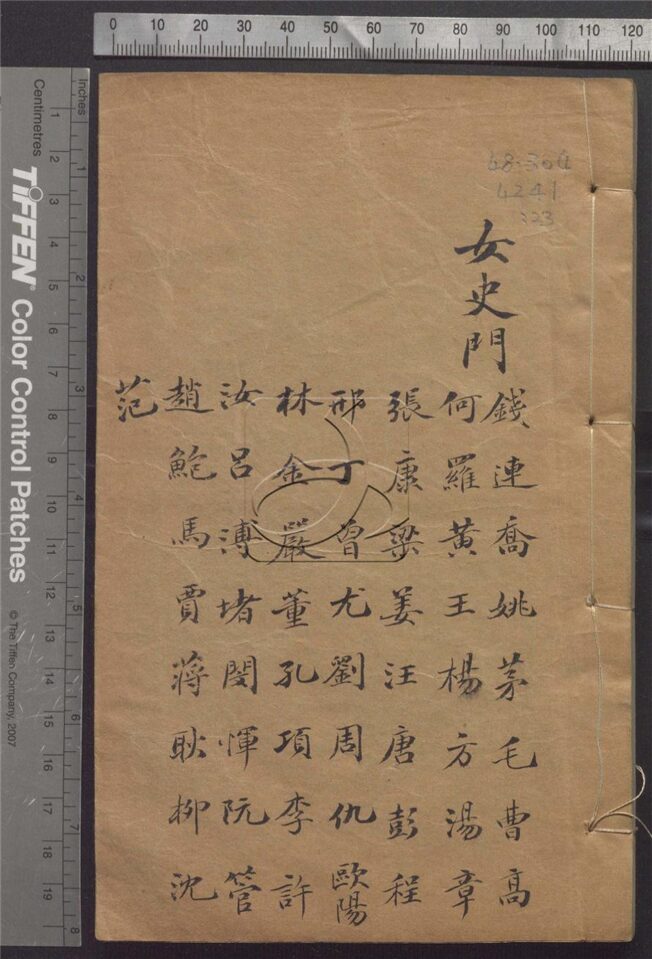 0 10 20 30 40 50 60 70 80 90 100 110 120
Inches
Centimetres
1 2 3 4 5 6 7 8
1 2 3 4 5 6 7 8 9 10 11 12 13 14 15 16 17 18 19
TIFFEN® Color Control Patches
© The Tiffen Company, 2007
4241
323
女史門
錢連喬姚茅毛曹高
何羅黃王楊方湯章
張康梁姜汪唐彭程
邢丁曾尤劉周仇歐陽
林金嚴董孔項李許
汝呂溥堵閔惲阮管
趙鮑馬賈蔣耿柳沈
范